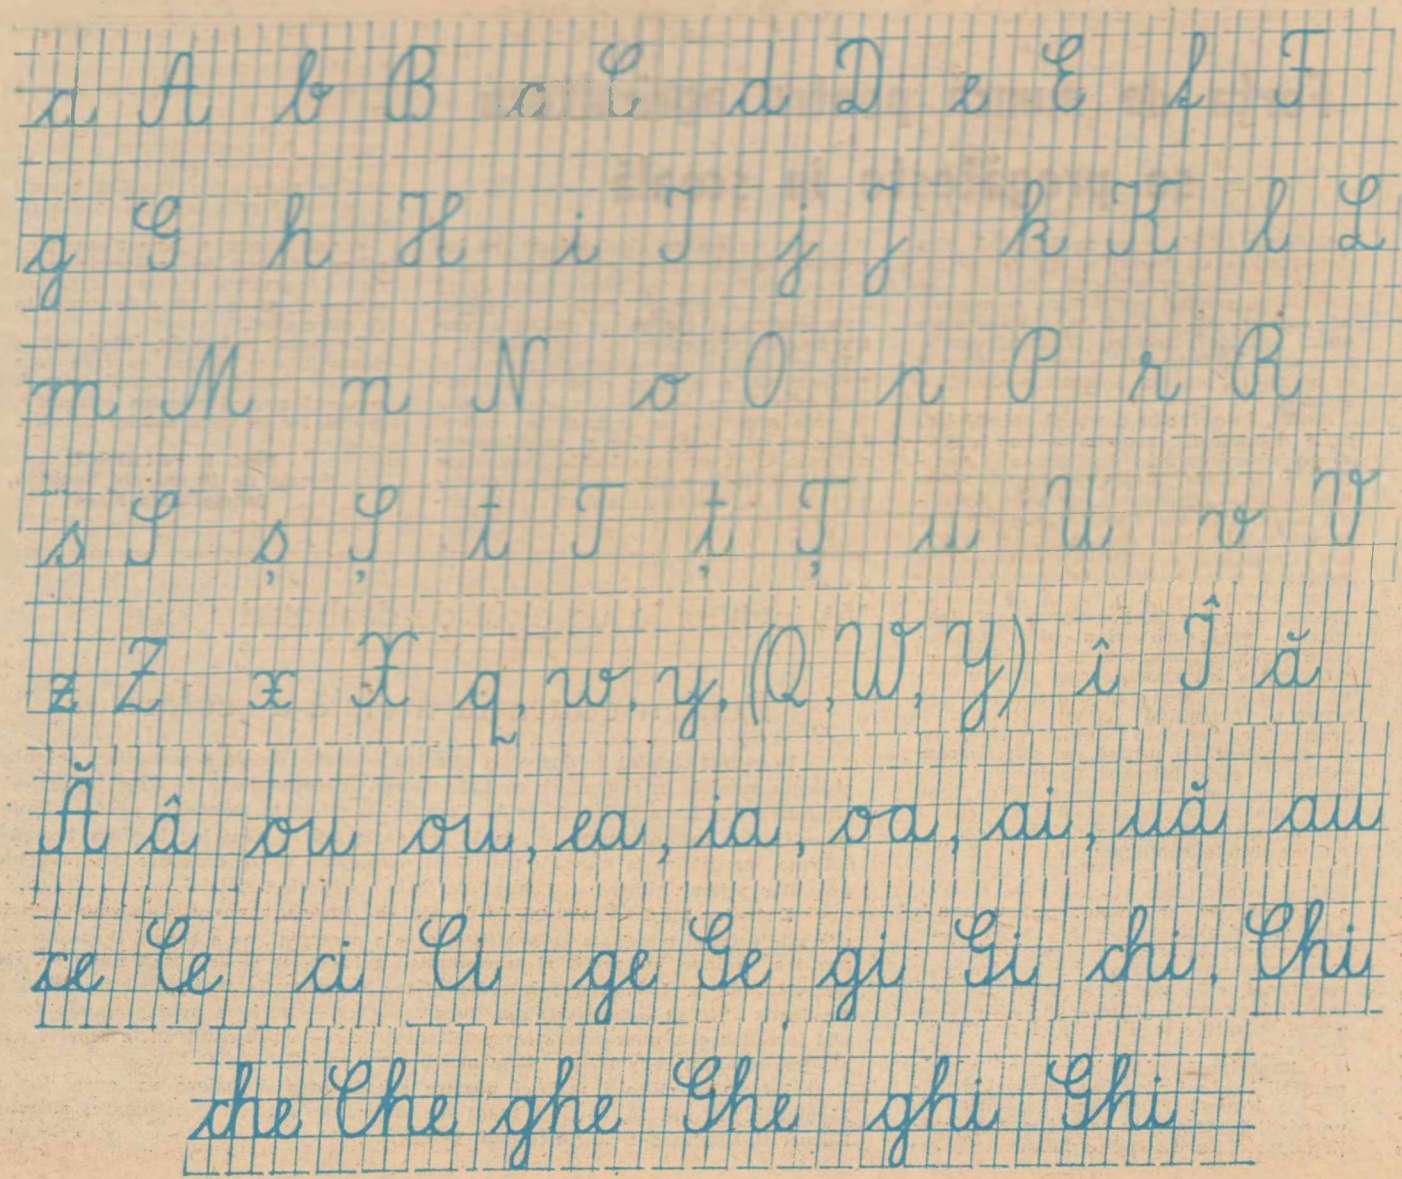 a A b B c C d D e E f F
g G h H i I j J k K l L
m M n N o O p P r R
s S ș Ș t T ț Ț u U v V
z Z x X q, w, y, (Q, W, Y) î Î ă
Ă â ou ou, ea, ia, oa, ai, uă au
ce Ce ci Ci ge Ge gi Gi chi, Chi
che Che ghe Ghe ghi Ghi